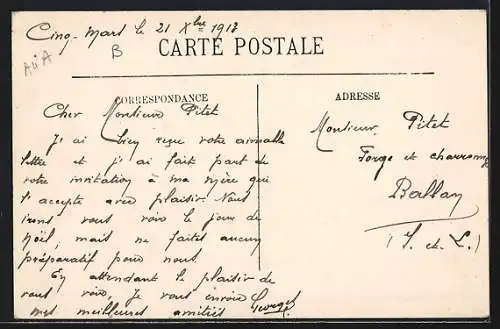 Cinq-Mars le 21 Xbre 1918
B
CARTE POSTALE
CORRESPONDANCE
ADRESSE
Cher Monsieur Pitet
J'ai bien reçu votre aimable
lettre et j'ai fait part de
votre invitation à ma mère qui
l'accepte avec plaisir. Nous
irons vous voir le jour de
Noël, mais ne faites aucun
préparatif pour nous.
En attendant le plaisir de
vous voir, Je vous envoie
mes meilleures amitiés Georges
Monsieur Pitet
Forge et charronnage
Ballan
(I. et L.)